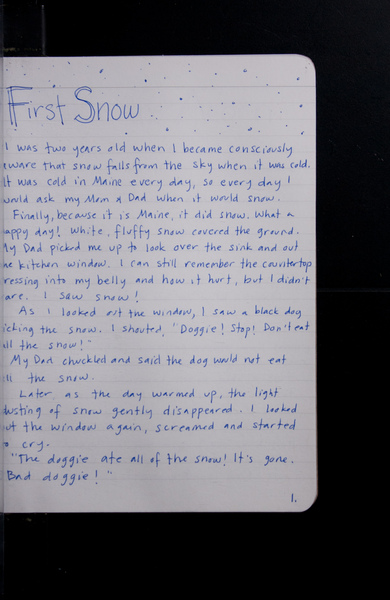 First Snow
I was two years old when I became consciously
aware that snow falls from the sky when it was cold.
It was cold in Maine every day, so every day I
would ask my Mom & Dad when it would snow.
Finally, because it is Maine, it did snow. What a
happy day! White, fluffy snow covered the ground.
My Dad picked me up to look over the sink and out
the kitchen window. I can still remember the countertop
pressing into my belly and how it hurt, but I didn't
care. I saw snow!
As I looked out the window, I saw a black dog
licking the snow. I shouted, "Doggie! Stop! Don't eat
all the snow!"
My Dad chuckled and said the dog would not eat
all the snow.
Later, as the day warmed up, the light
dusting of snow gently disappeared. I looked
out the window again, screamed and started
to cry.
"The doggie ate all of the snow! It's gone.
Bad doggie!"
1.